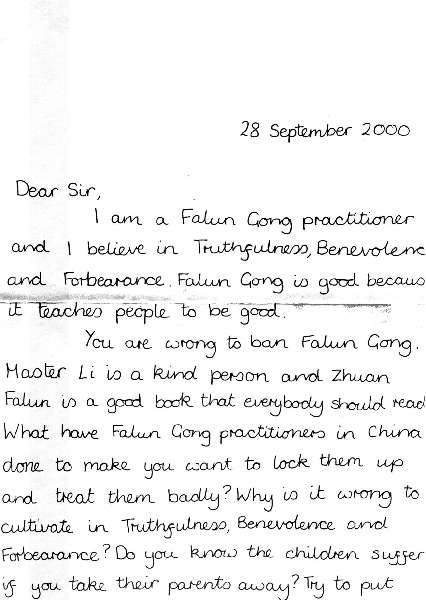 28 September 2000
Dear Sir,
I am a Falun Gong practitioner
and I believe in Truthfulness, Benevolenc
and Forbearance. Falun Gong is good becaus
it teaches people to be good.
You are wrong to ban Falun Gong.
Master Li is a kind person and Zhuan
Falun is a good book that everybody should read
What have Falun Gong practitioners in China
done to make you want to lock them up
and treat them badly? Why is it wrong to
cultivate in Truthfulness, Benevolence and
Forbearance? Do you know the children suffer
if you take their parents away? Try to put